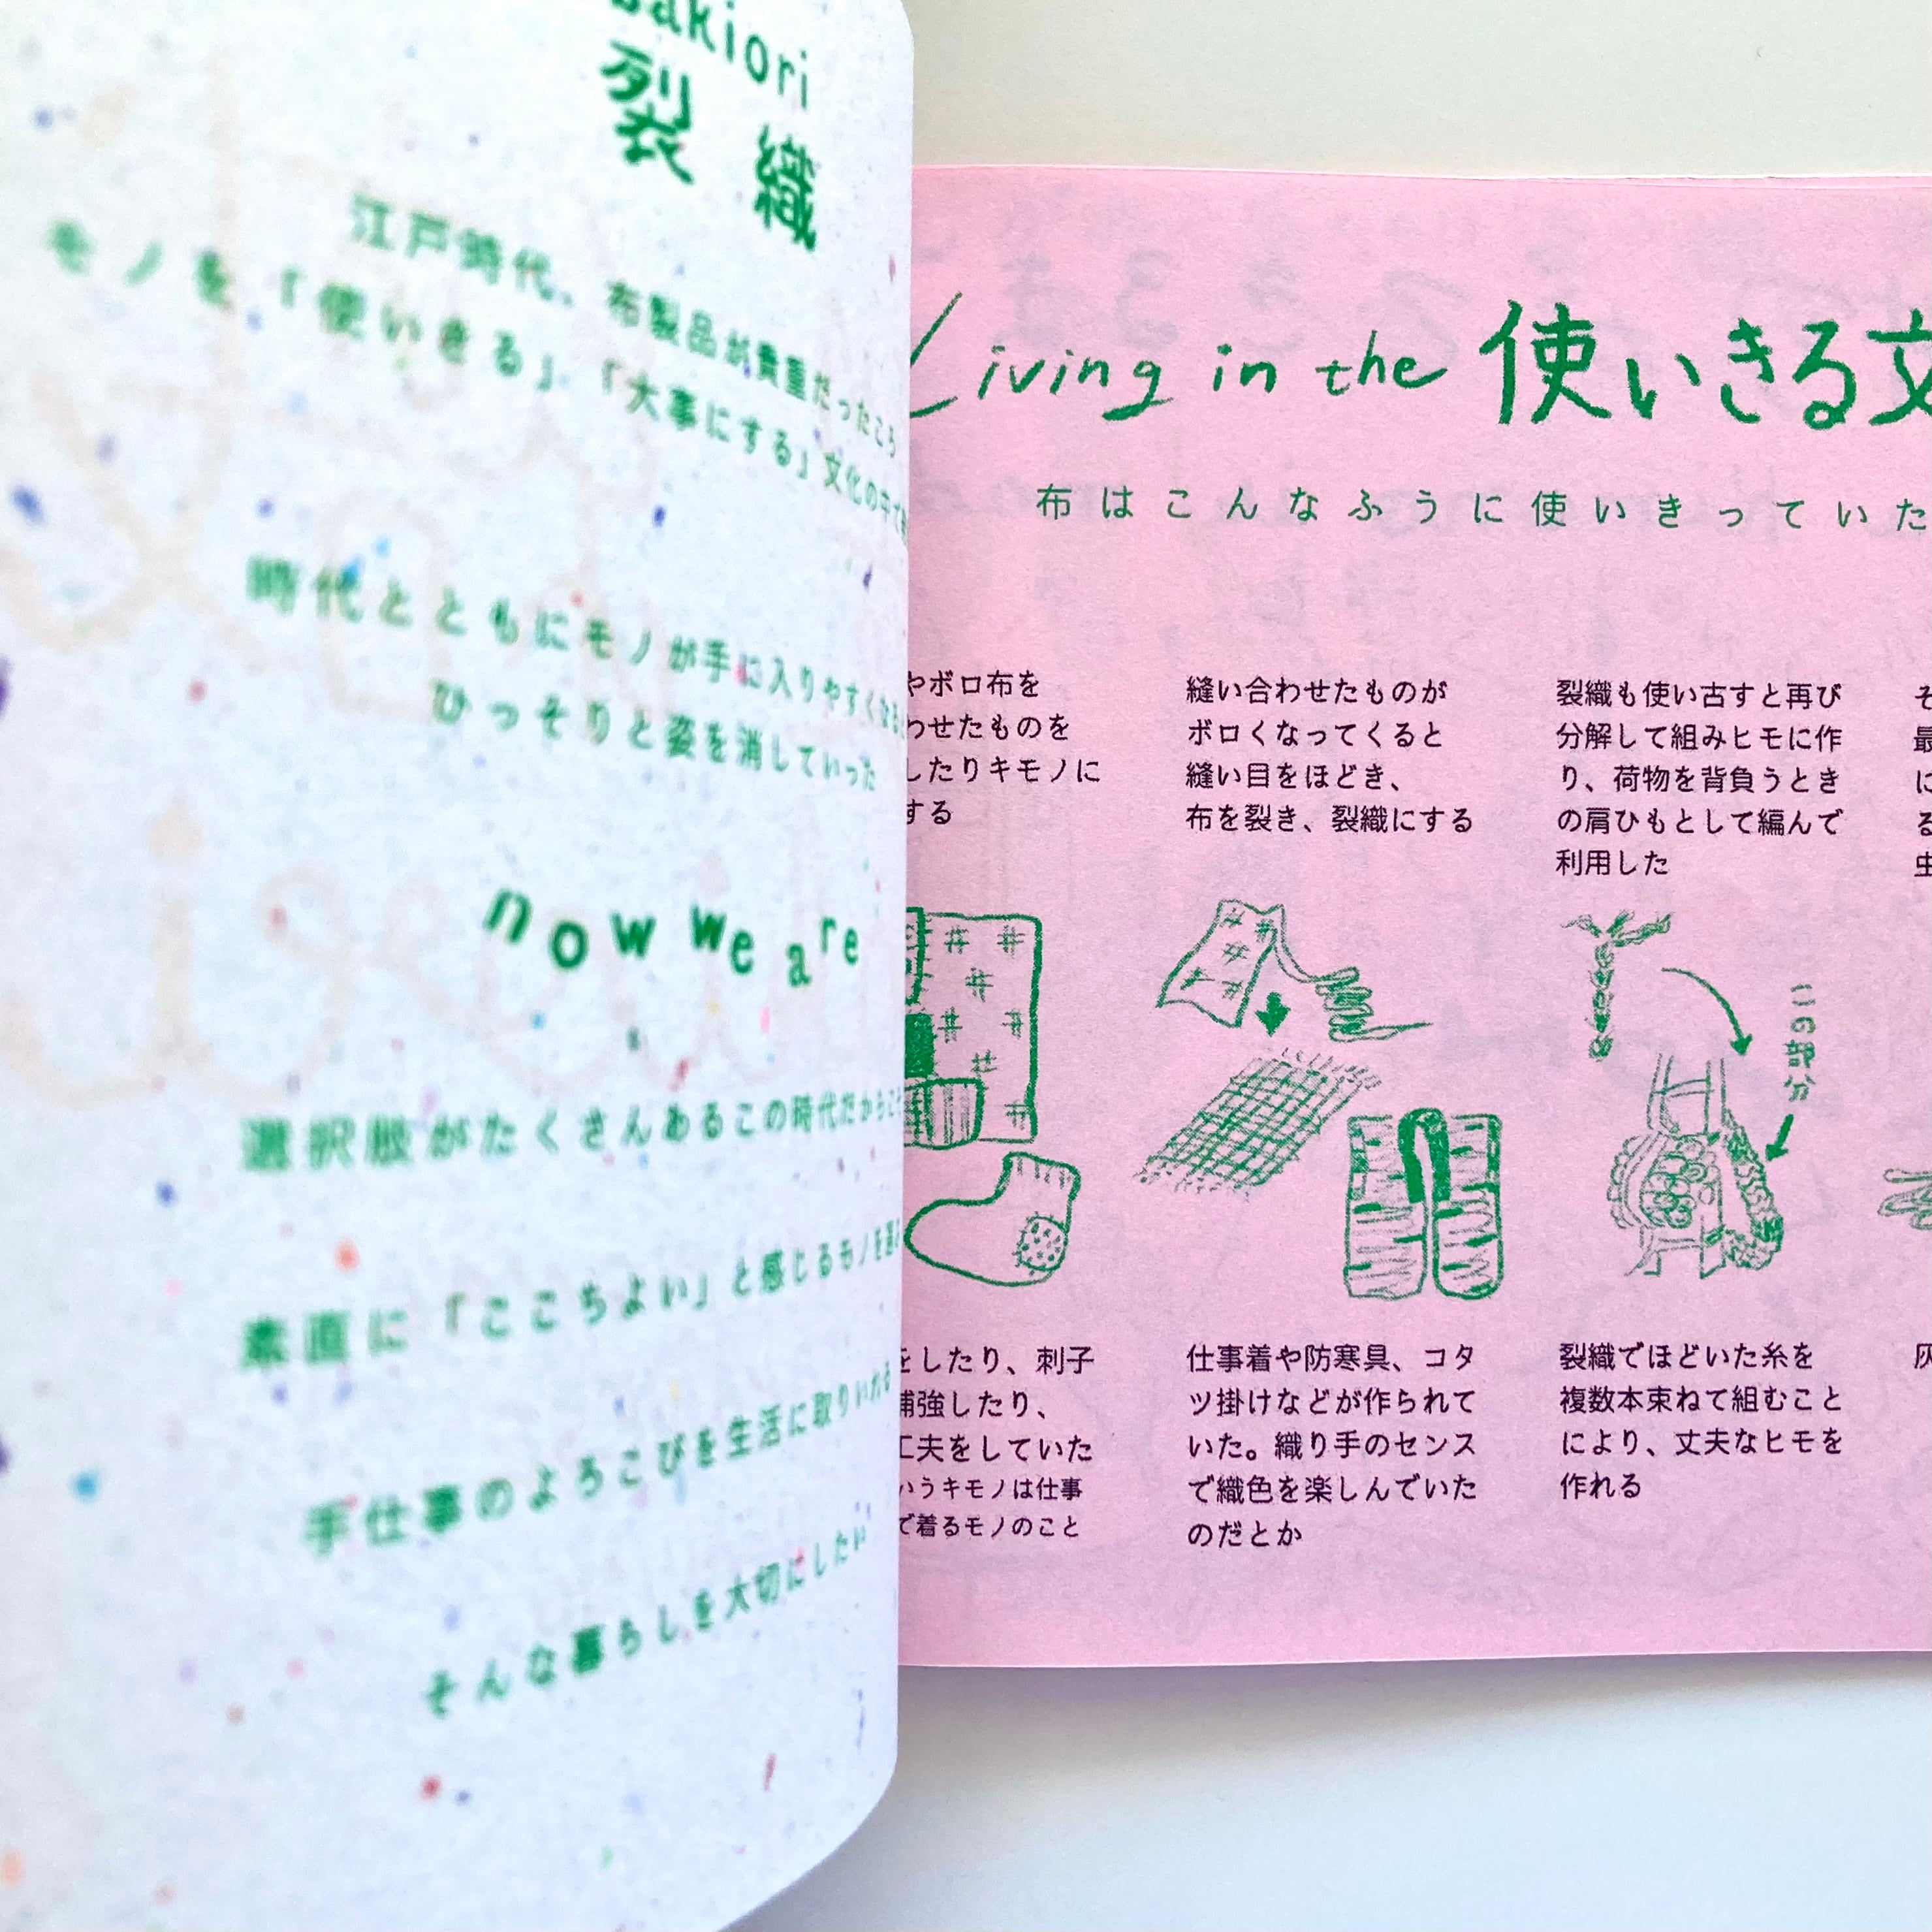 sakiori
裂織
江戸時代、布製品が貴重だったころ
モノを「使いきる」「大事にする」文化の中で
時代とともにモノが手に入りやすくなる
ひっそりと姿を消していった
now we are
選択肢がたくさんあるこの時代だからこそ
素直に「ここちよい」と感じるモノを
手仕事のよろこびを生活に取りいれる
そんな暮らしを大切にしたい
Living in the 使いきる文
布はこんなふうに使いきっていた
やボロ布を
わせたものを
したりキモノに
する
をしたり、刺子
補強したり、
工夫をしていた
いうキモノは仕事
で着るモノのこと
縫い合わせたものが
ボロくなってくると
縫い目をほどき、
布を裂き、裂織にする
仕事着や防寒具、コタ
ツ掛けなどが作られて
いた。織り手のセンス
で織色を楽しんでいた
のだとか
裂織も使い古すと再び
分解して組みヒモに作
り、荷物を背負うとき
の肩ひもとして編んで
利用した
この部分
裂織でほどいた糸を
複数本束ねて組むこと
により、丈夫なヒモを
作れる
そ
最
に
る
灰